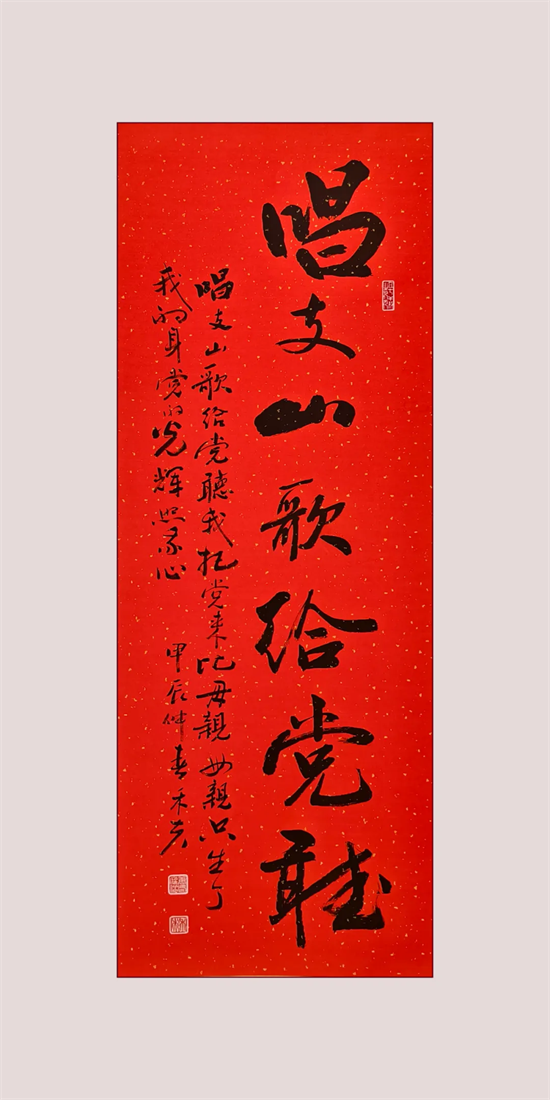 唱支山歌给党聴
唱支山歌给党聽我把党来比母親母親只生了
我的身党的光辉照我心
甲辰仲春禾夫